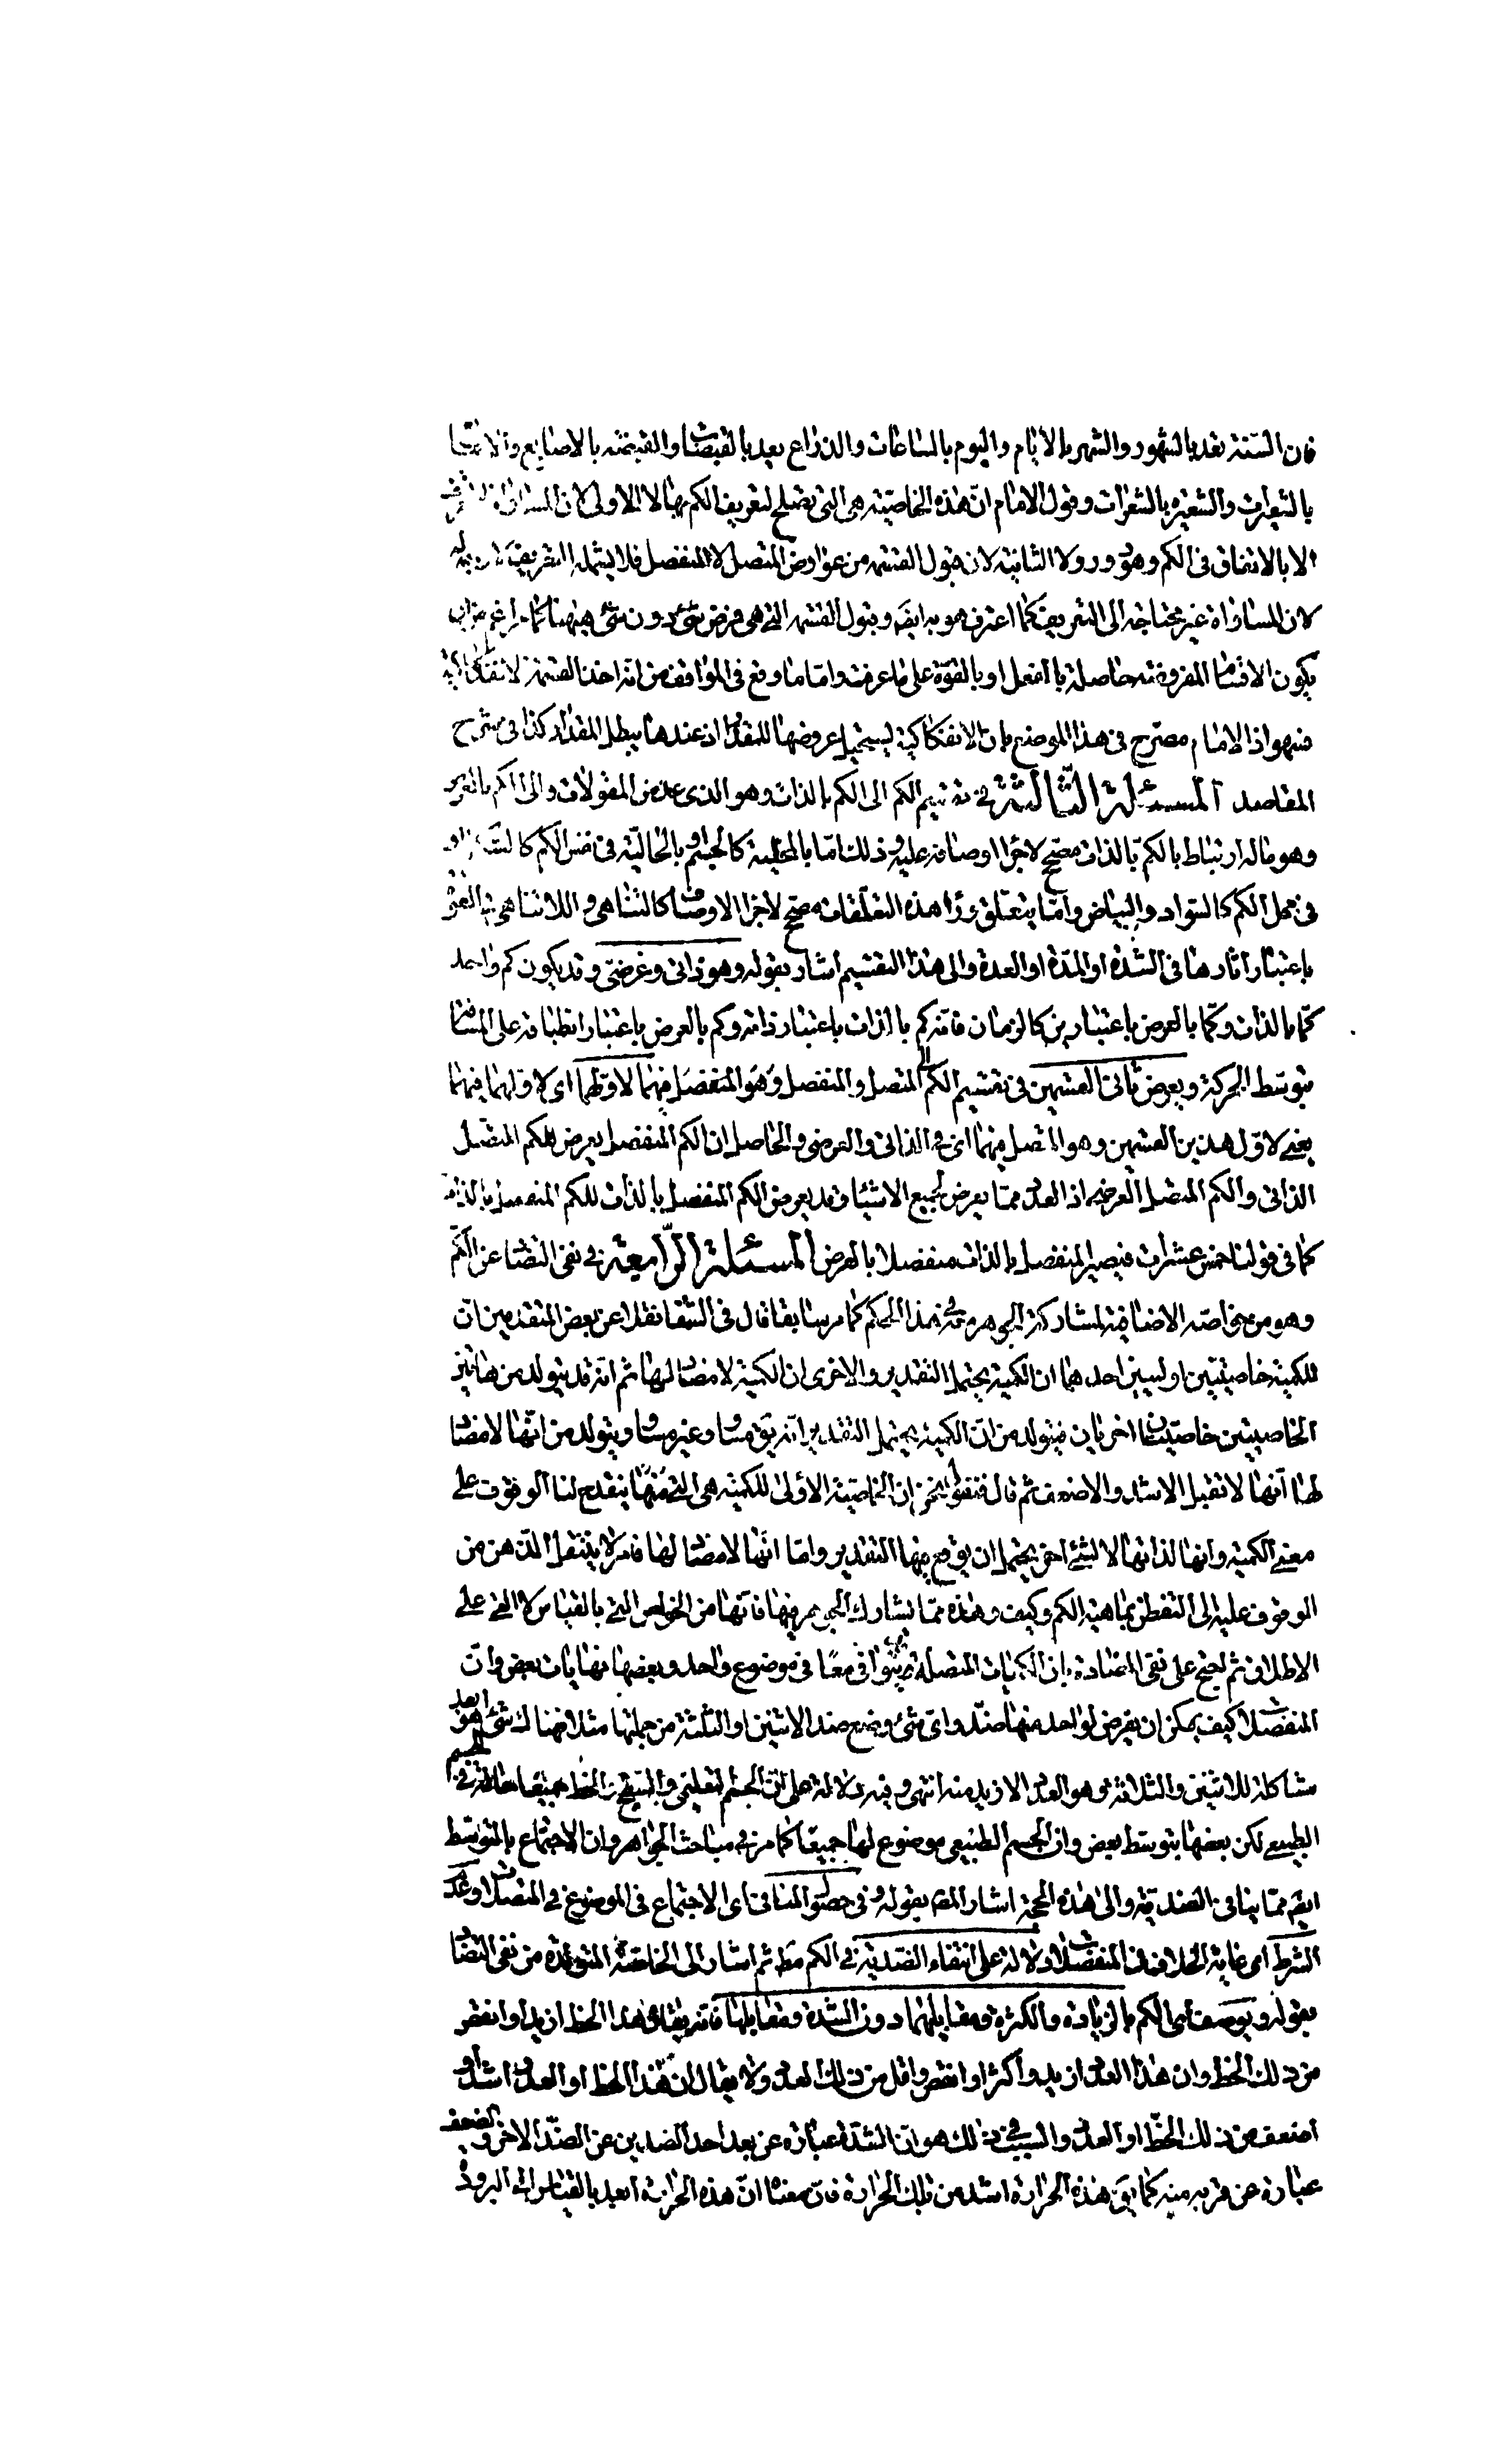 فان السّنة تعد بالشهور والشهر بالأيام واليوم بالساعات والذراع يعد بالقبضات والقبضة بالاصابع والاصبع
بالشعيرات والشعيرة بالشعرات وقول الامام انّ هذه الخاصيّة هى التى تصلح لتعريف الكم بها لا الاولى لان المساواة لا تعرف
الا بالاتفاق فى الكم وهو دور ولا الثانية لان قبول القسمة من عوارض المتصل لا المنفصل فلا يشمله التعريف
لان المساواة غير محتاجة الى التعريف كما اعترف هو به ايضا وقبول القسمة التى هى فرض شئ دون شئ
بكون الاقسام المفروضة حاصلة بالفعل او بالقوة على ما عرفت واما ما وقع فى المواقف من انّه اخذ القسمة الانفكاكية
فسهو اذ الامام مصرّح فى هذا الموضع بان الانفكاكية يستحيل عروضها للمقدار اذ عندها يبطل المقدار كذا فى شرح
المقاصد المسئلة الثّالثة فى تقسيم الكم الى الكم بالذات وهو الذى عدّ من المقولات والى الكم بالعرض
وهو ما له ارتباط بالكم بالذات مصحّح لاجراء اوصافه عليه وذلك امّا بالمحليّة كالجسم او بالحاليّة فى نفس الكم كالشكل او
فى محل الكم كالسواد والبياض وامّا بتعلّق وراء هذه التعلّقات مصحّح لاجراء الاوصاف كالتناهى واللاتناهى فى القوى
باعتبار اثارها فى الشدّة او المدّة او العدة والى هذا التقسيم اشار بقوله وهو ذاتى وعرضىّ وقد يكون كم واحد
كمّا بالذات وكمّا بالعرض باعتبارين كالزمان فانّه كم بالذات باعتبار ذاته وكم بالعرض باعتبار انطباقه على المسافة
بتوسّط الحركة ويعرض ثانى القسمين فى تقسيم الكم الى المتصل والمنفصل وهو المنفصل فيهما لاولهما اى لاولهما فيهما
يعنى لاوّل هذين القسمين وهو المتصل فيهما اى فى الذاتى والعرضى والحاصل ان الكم المنفصل يعرض للكم المتصل
الذاتى والكم المتصل العرضى اذ العدد ممّا يعرض لجميع الاشياء وقد يعرض الكم المنفصل بالذات للكم المنفصل بالذات
كما فى قولنا خمس عشرات فيصير المنفصل بالذات منفصلا بالعرض المسئلة الرّابعة فى نفى التضاد عن الكمّ
وهو من خواصّه الاضافية لمشاركة الجوهر معه فى هذا الحكم كما مر سابقا قال فى الشفا نقلا عن بعض المتقدمين انّ
للكمية خاصيّتين اوليين احدهما ان الكمية يحتمل التقدير والاخرى ان الكمية لا مضاد لها ثم انّه قد يتولد من هاتين
الخاصيتين خاصيتان اخريان فيتولد من انّ الكمية يحتمل التقدير انّه يقال مساو وغير مساو ويتولد من انّها لا مضاد
لها انّها لا تقبل الاشد والاضعف ثم قال فنقول نحن ان الخاصيّة الأولى للكمية هى التى منها ينقدح لنا الوقوف على
معنى الكمية وانها لذاتها لا لشئ اخر يحتمل ان يوقع فيها التقدير وامّا انّها لا مضاد لها فامر لا ينتقل الذهن من
الوقوف عليه الى التفطن بماهية الكم وكيف وهذه ممّا يشارك الجوهر فيها فانها من الخواص التى بالقياس لا التى على
الاطلاق ثم احتج على نفى المضادة بان الكميات المتصلة قد يتوافى معا فى موضوع واحد وبعضها نهايات بعض وانّ
المنفصلات كيف يمكن ان يفرض لواحد منها ضدّ واىّ شئ وضع ضد الاثنين او الثلثة من جملتها مثلا فهناك شئ هو ابعد
مشاكلة للاثنين والثلاثة وهو العدد الازيد منه انتهى وفيه دلالة على انّ الجسم التعليمى والسطح والخط جميعا حالة فى الجسم
الطبيعى لكن بعضها بتوسّط بعض وان الجسم الطبيعى موضوع لها جميعا كما مر فى مباحث الجواهر وان الاجتماع بالتوسّط
ايضا ممّا ينافى الضديّة والى هذه الحجّة اشار المصنف بقوله وفى حصول المنافى اى الاجتماع فى الموضوع فى المتصلات وعدم
الشرط اى غاية الخلاف فى المنفصلات دلالة على انتفاء الضديّة فى الكم مطلقا ثم اشار الى الخاصّة المتولدة من نفى التضاد
بقوله ويوصف اى الكم بالزيادة والكثرة ومقابليهما دون الشدة ومقابلها فانه يقال هذا الخط ازيد او انقص
من ذلك الخط وان هذا العدد ازيد واكثر او انقص واقل من ذلك العدد ولا يقال ان هذا الخط او العدد اشدّ او
اضعف من ذلك الخطّ او العدد والسبب فى ذلك هو انّ الشدّة عبارة عن بعد احد الضدين عن الضدّ الاخر والضعف
عبارة عن قربه منه كما يقال هذه الحرارة اشد من تلك الحرارة فان معناه انّ هذه الحرارة ابعد بالقياس الى البرودة